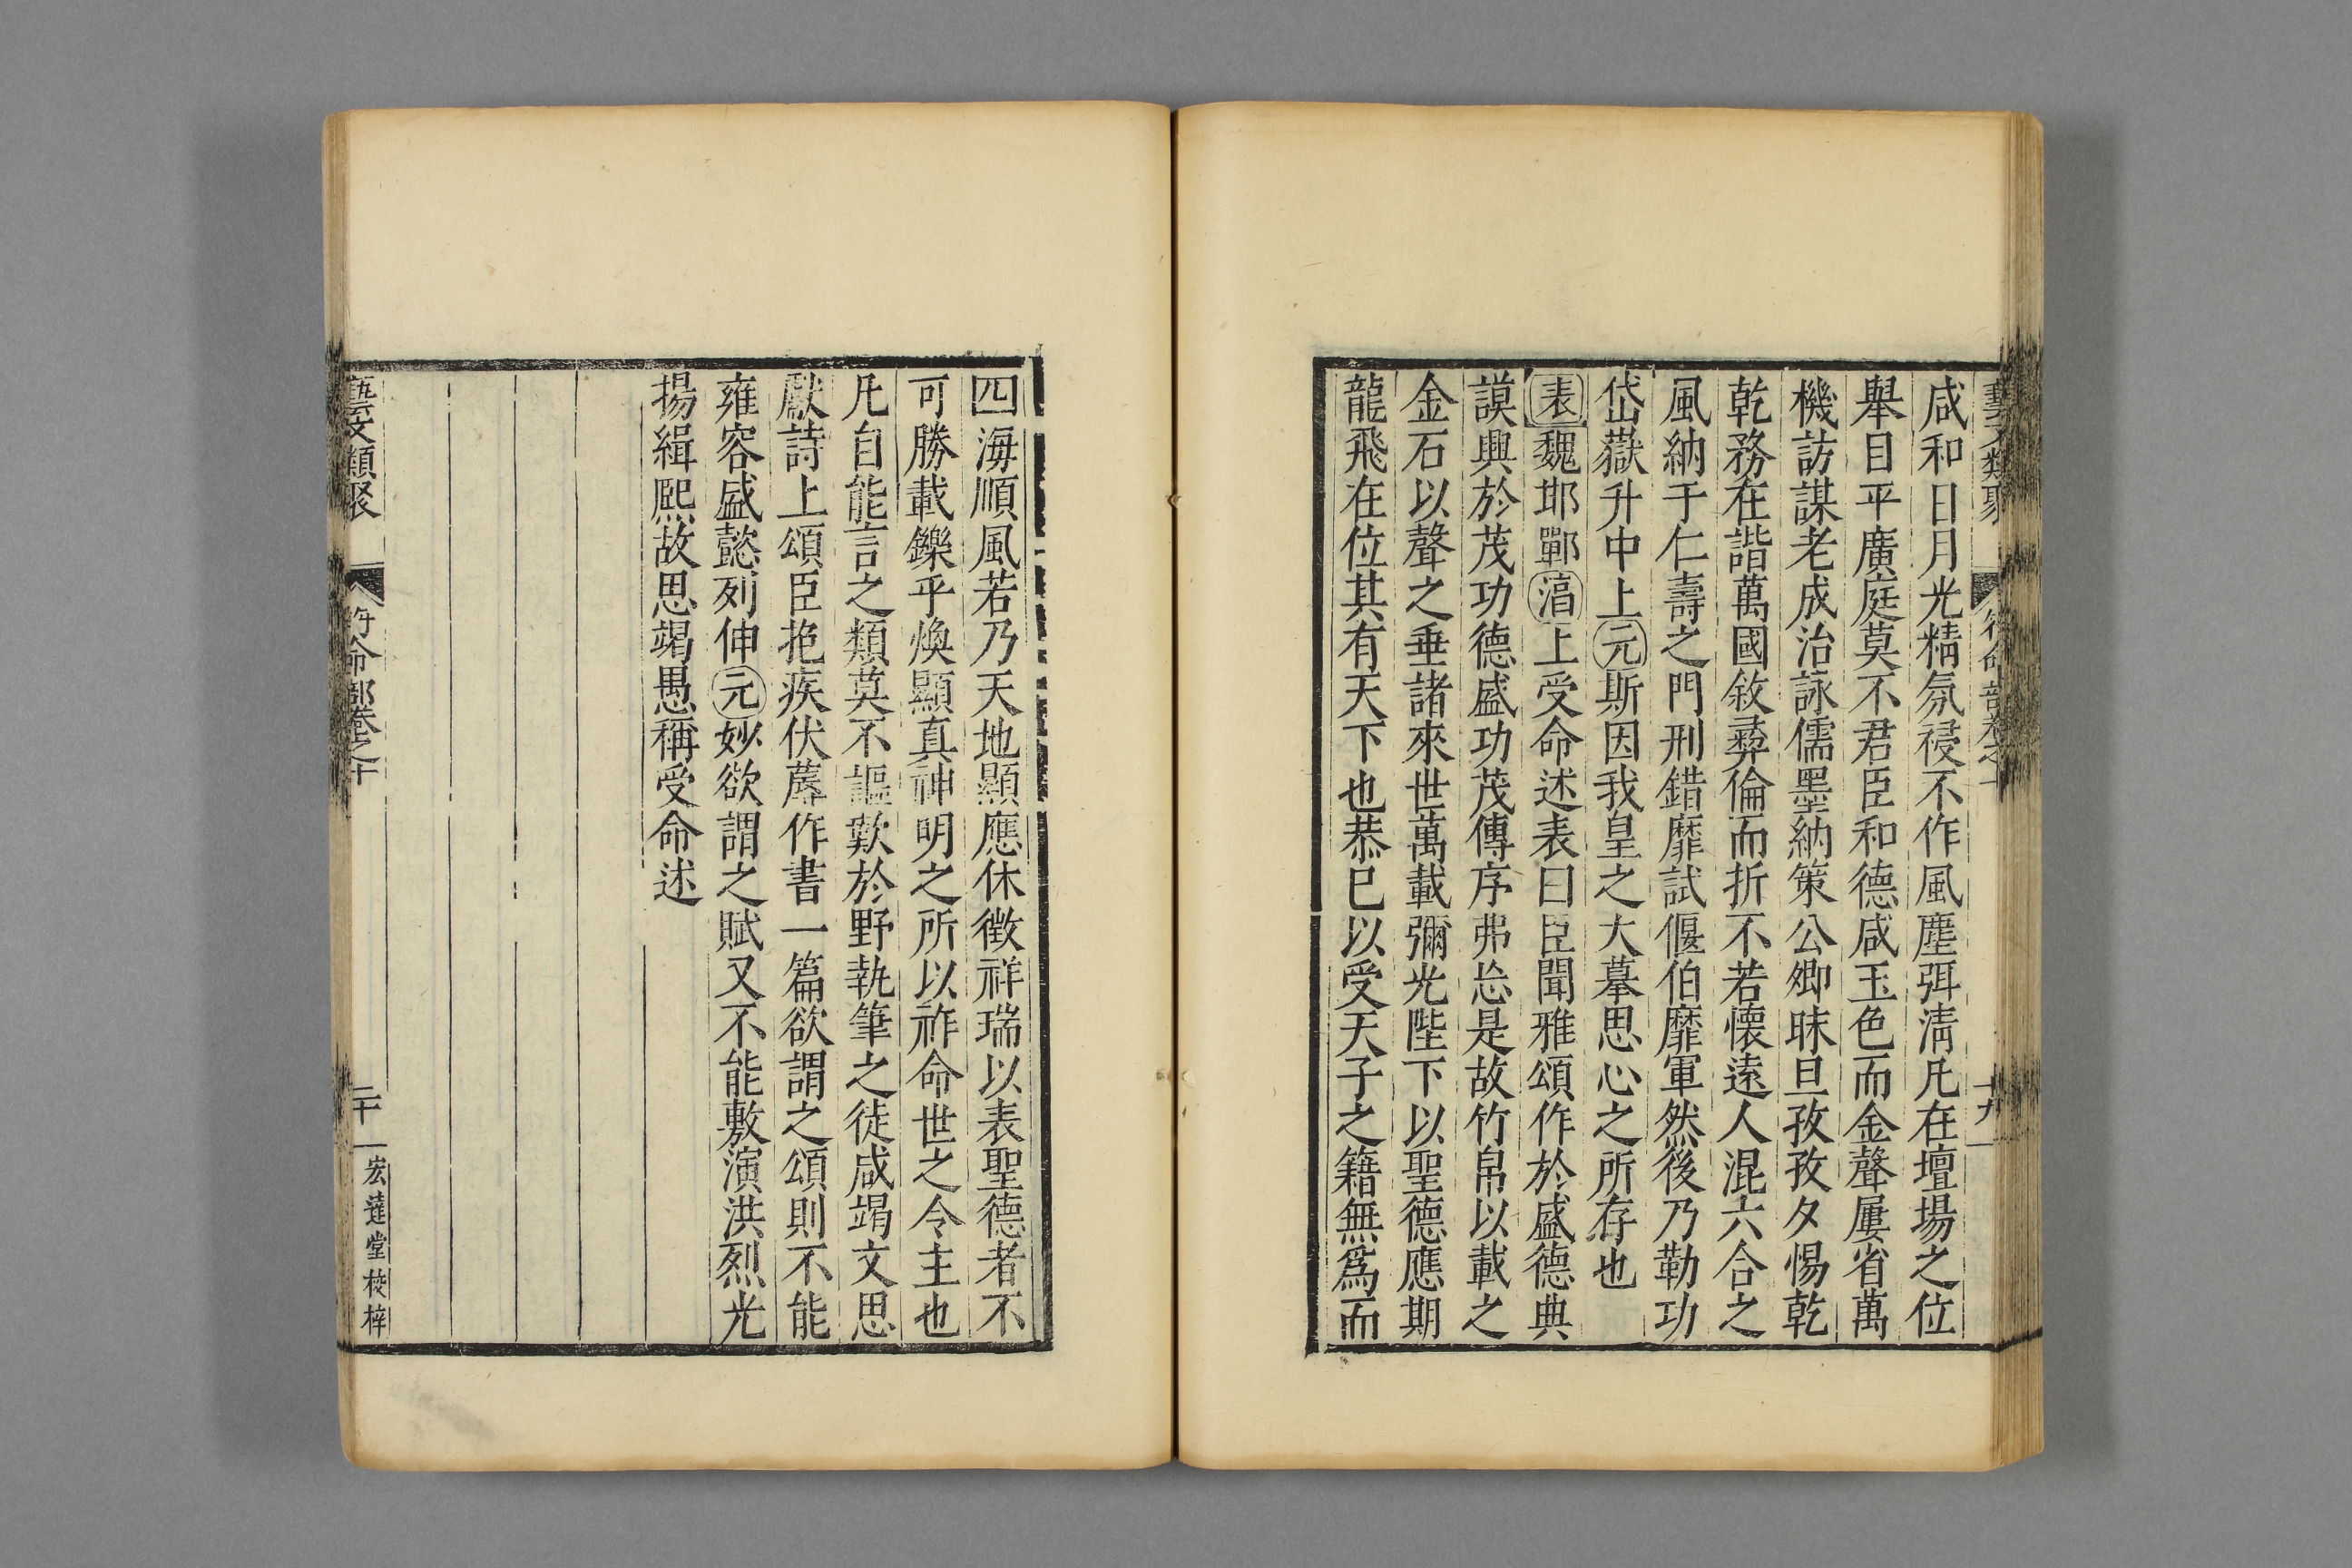 藝文類聚 符命部卷之十 十九
咸和日月光精氛祲不作風塵弭淸凡在壇場之位
舉目平廣庭莫不君臣和德咸玉色而金聲屢省萬
機訪謀老成治詠儒墨納策公卿昧旦孜孜夕惕乾
乾務在諧萬國敘彞倫而折不若懷遠人混六合之
風納于仁壽之門刑錯靡試偃伯靡軍然後乃勒功
岱嶽升中上元斯因我皇之大摹思心之所存也
表魏邯鄲湻上受命述表曰臣聞雅頌作於盛德典
謨興於茂功德盛功茂傳序弗忘是故竹帛以載之
金石以聲之垂諸來世萬載彌光陛下以聖德應期
龍飛在位其有天下也恭巳以受天子之籍無爲而
四海順風若乃天地顯應休徵祥瑞以表聖德者不
可勝載鑠乎煥顯真神明之所以祚命世之令主也
凡自能言之類莫不謳歎於野執筆之徒咸竭文思
獻詩上頌臣抱疾伏蓐作書一篇欲謂之頌則不能
雍容盛懿列伸元妙欲謂之賦又不能敷演洪烈光
揚緝熙故思竭愚稱受命述
藝文類聚 符命部卷之十 二十 宏達堂校梓